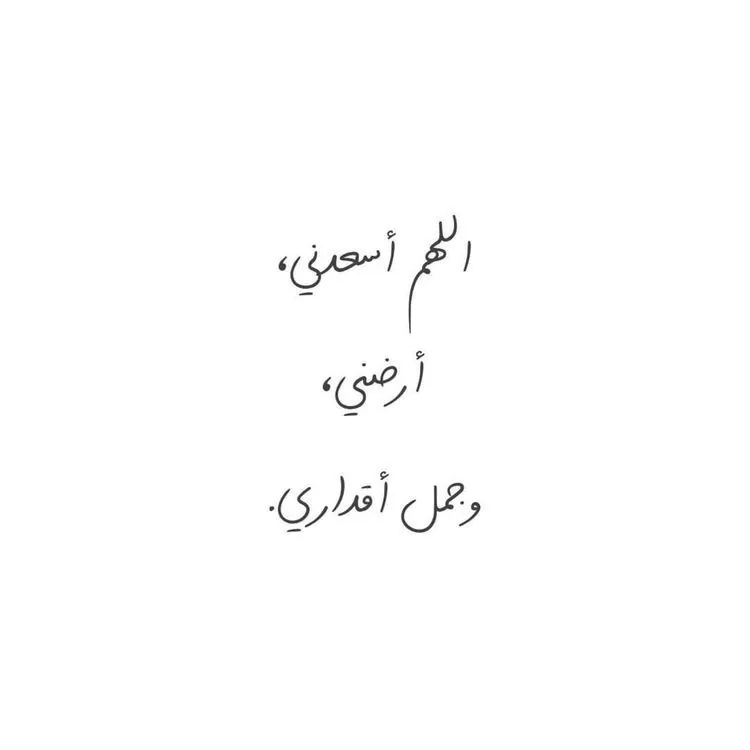 اللهم أسعدني،
أرضني،
وجمل أقداري.